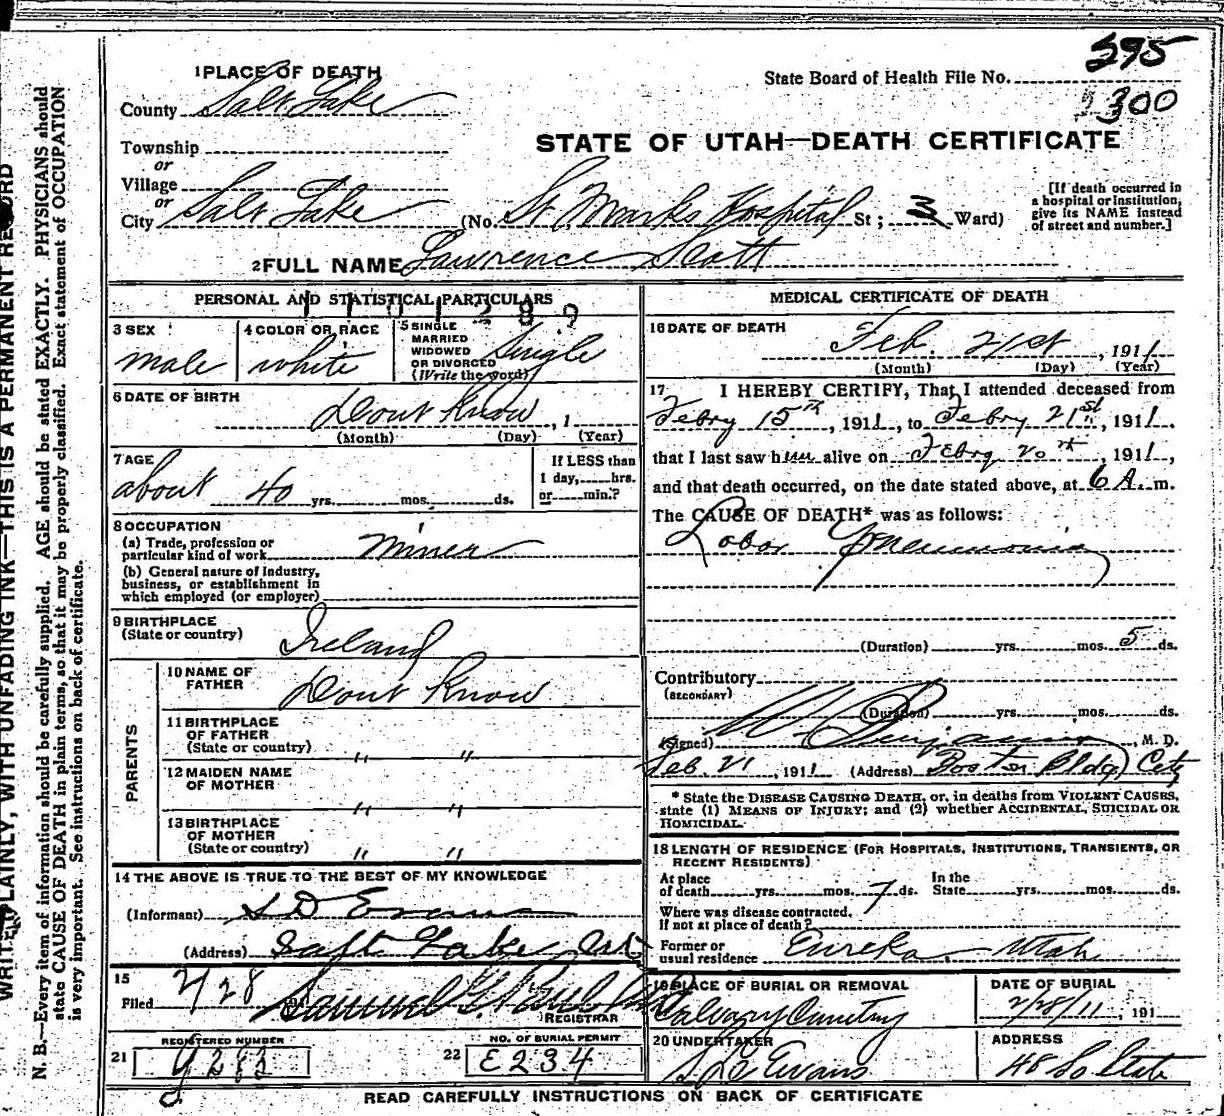 295
State Board of Health File No.
300
1 PLACE OF DEATH
County Salt Lake
STATE OF UTAH—DEATH CERTIFICATE
Township
or
Village
or
City Salt Lake (No. St. Marks Hospital St; 3 Ward)
[If death occurred in a hospital or institution, give its NAME instead of street and number.]
2 FULL NAME Lawrence Scott
PERSONAL AND STATISTICAL PARTICULARS
3 SEX male
4 COLOR OR RACE white
5 SINGLE MARRIED WIDOWED OR DIVORCED (Write the word) Single
6 DATE OF BIRTH Dont Know, 1
(Month) (Day) (Year)
7 AGE about 40 yrs. mos. ds.
If LESS than 1 day, hrs. or min.?
8 OCCUPATION
(a) Trade, profession or particular kind of work Miner
(b) General nature of industry, business, or establishment in which employed (or employer)
9 BIRTHPLACE (State or country) Ireland
PARENTS
10 NAME OF FATHER Dont Know
11 BIRTHPLACE OF FATHER (State or country) " "
12 MAIDEN NAME OF MOTHER " "
13 BIRTHPLACE OF MOTHER (State or country) " "
14 THE ABOVE IS TRUE TO THE BEST OF MY KNOWLEDGE
(Informant) S D Evans
(Address) Salt Lake, Ut
15 Filed 2/28 191 Samuel G.
REGISTRAR
21 REGISTERED NUMBER 9283
22 NO. OF BURIAL PERMIT E234
MEDICAL CERTIFICATE OF DEATH
16 DATE OF DEATH
Feb. 21st, 1911
(Month) (Day) (Year)
17 I HEREBY CERTIFY, That I attended deceased from
Febry 15th, 1911, to Febry 21st, 1911.
that I last saw him alive on Febry 20th, 1911,
and that death occurred, on the date stated above, at 6 A. m.
The CAUSE OF DEATH* was as follows:
Lobar Pneumonia
(Duration) yrs. mos. 5 ds.
Contributory
(SECONDARY)
(Duration) yrs. mos. ds.
(Signed) W. Benjamin, M. D.
Feb. 21, 1911 (Address) Boston Bldg, City
* State the DISEASE CAUSING DEATH, or, in deaths from VIOLENT CAUSES,
state (1) MEANS OF INJURY; and (2) whether ACCIDENTAL, SUICIDAL OR
HOMICIDAL.
18 LENGTH OF RESIDENCE (FOR HOSPITALS, INSTITUTIONS, TRANSIENTS, OR
RECENT RESIDENTS)
At place of death yrs. mos. 7 ds. In the State yrs. mos. ds.
Where was disease contracted, if not at place of death?
Former or usual residence Eureka Utah
19 PLACE OF BURIAL OR REMOVAL Calvary Cemetery
DATE OF BURIAL 2/28/11, 191
20 UNDERTAKER S D Evans
ADDRESS 48 So State
READ CAREFULLY INSTRUCTIONS ON BACK OF CERTIFICATE
WRITE PLAINLY, WITH UNFADING INK—THIS IS A PERMANENT RECORD
N. B.—Every item of information should be carefully supplied. AGE should be stated EXACTLY. PHYSICIANS should
state CAUSE OF DEATH in plain terms, so that it may be properly classified. Exact statement of OCCUPATION
is very important. See instructions on back of certificate.